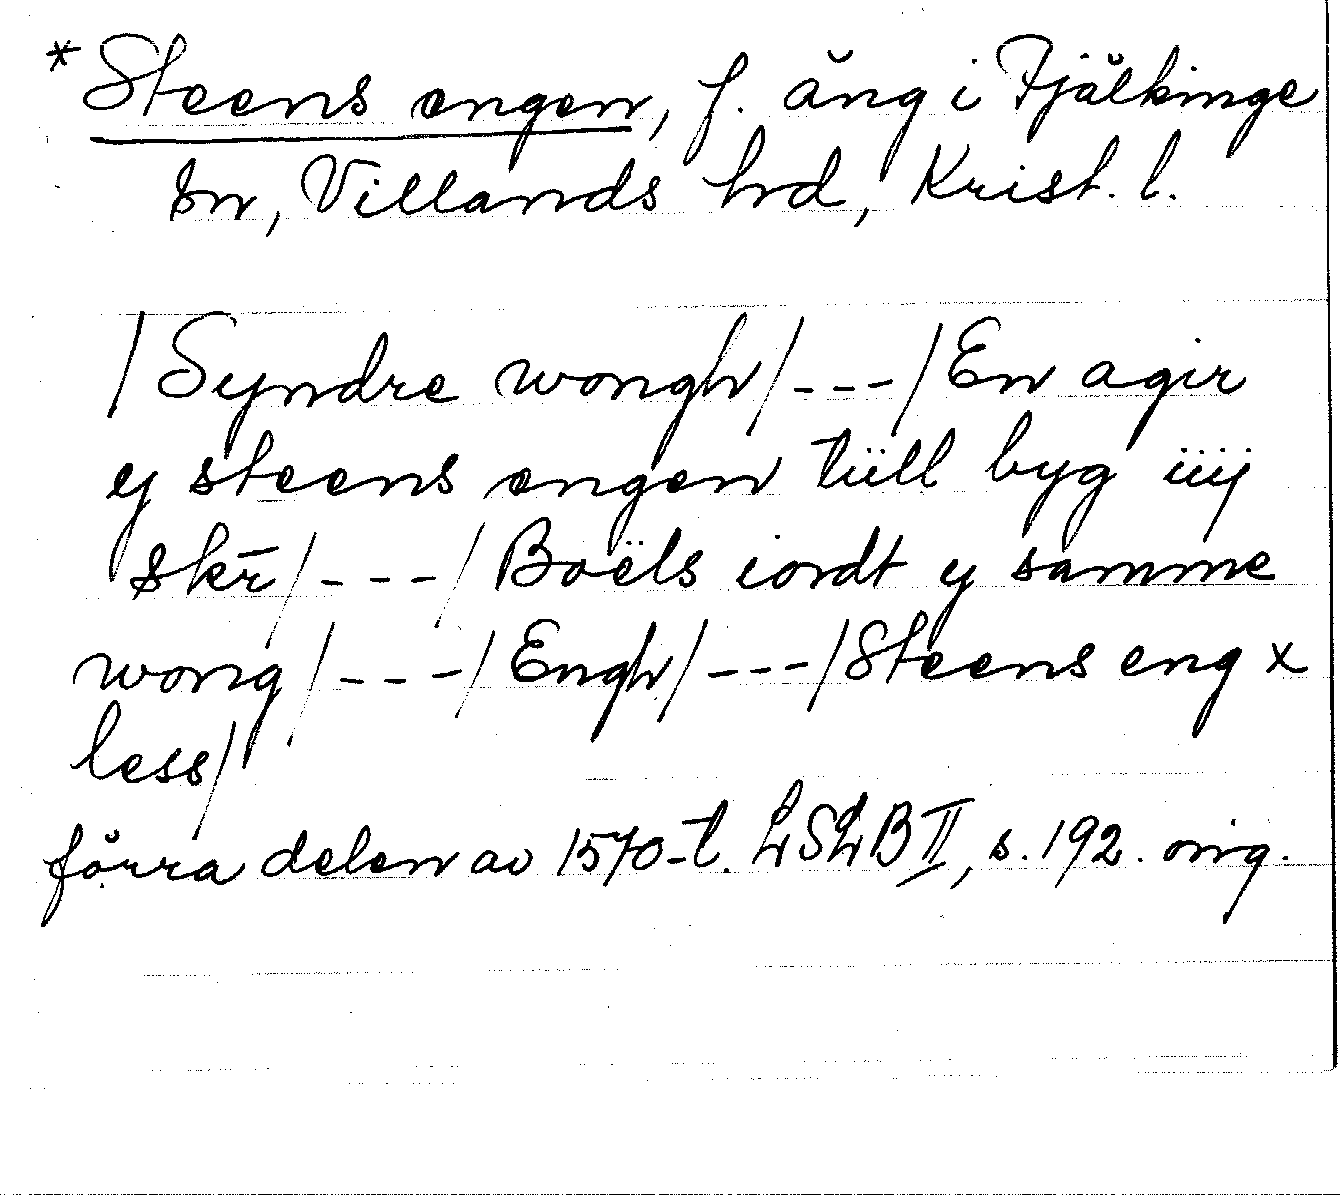 *Steens engen, f. äng i Fjälkinge
sn, Villands hrd, Krist. l.
/Syndre wongh/---/En agir
y steens engen tiill byg iiij
skr̄/---/Boëls iordt y samme
wong/---/Engh/---/Steens eng x
less/
förra delen av 1570-t. LSLB II, s. 192. orig.